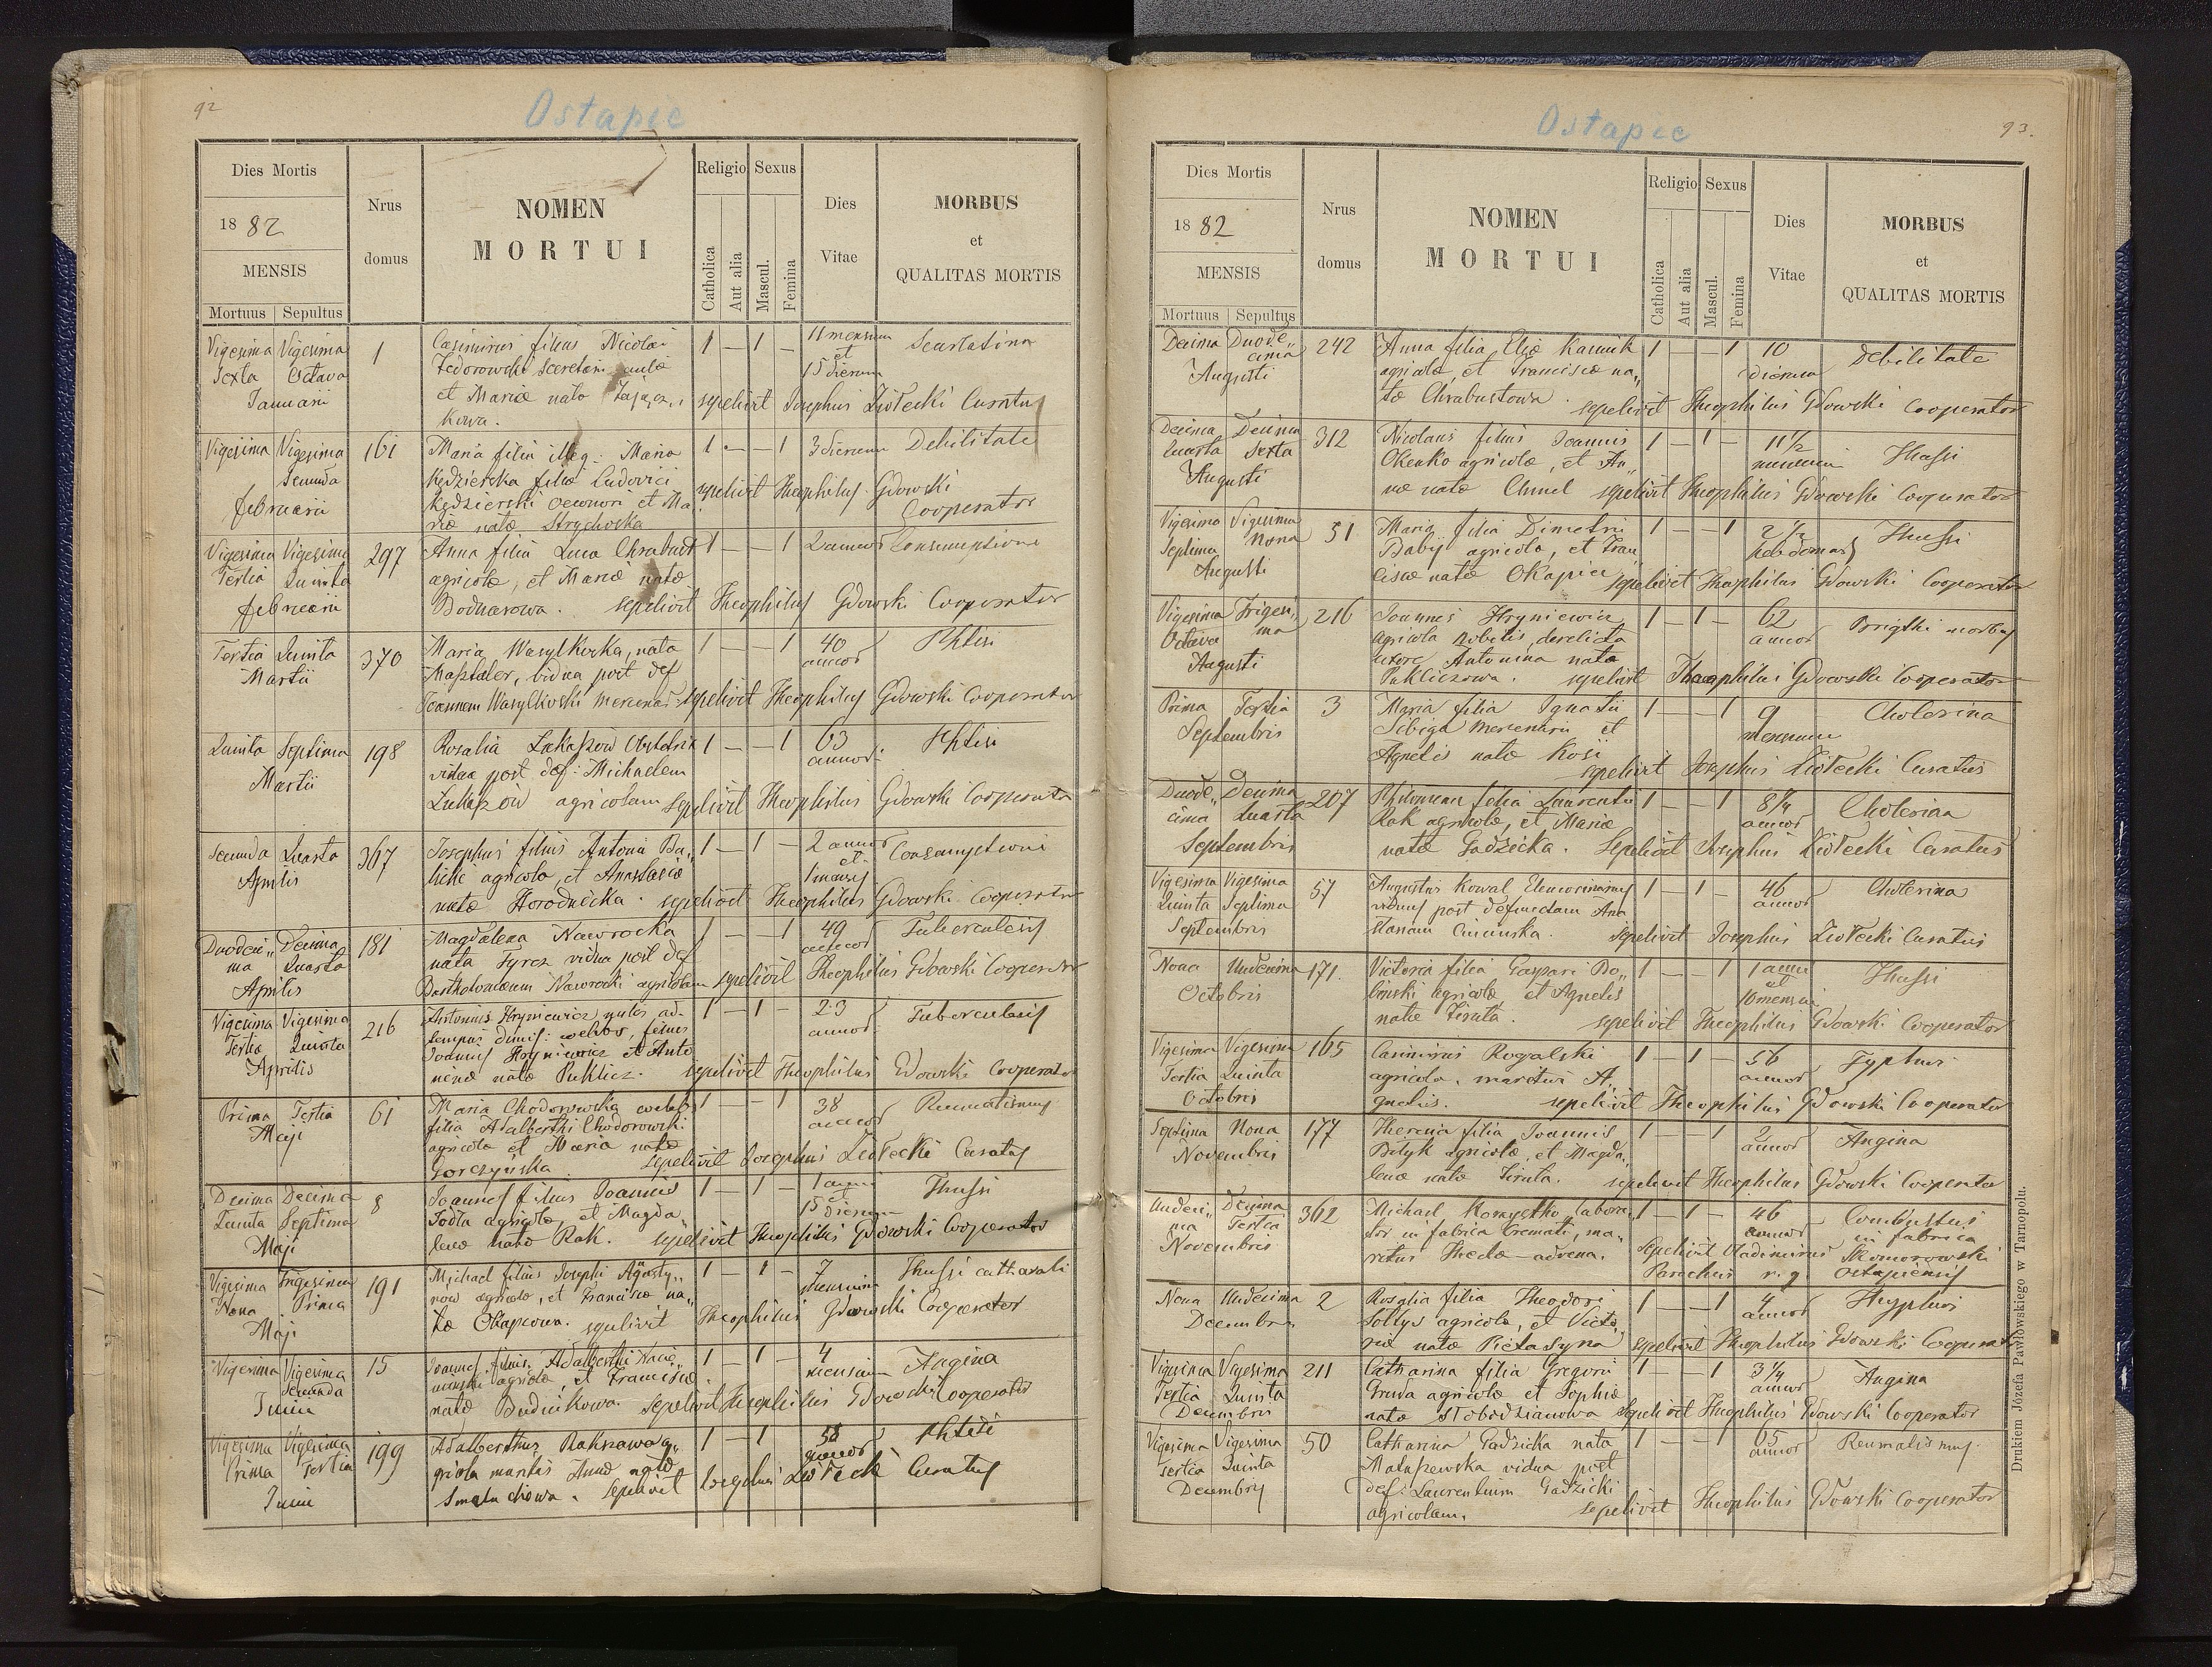 92
Ostapie
Dies Mortis
1882
MENSIS
Mortuus Sepultus
Nrus domus
NOMEN
MORTUI
Religio
Catholica
Aut alia
Sexus
Mascul.
Femina
Dies
Vitae
MORBUS
et
QUALITAS MORTIS
Vigesima Vigesima 1 Casimirus filius Nicolai 1 — 1 — 11 mensium Scarlatina
Sexta Octava Fedorowski et
Januarii 15 dierum
et Mariæ nata
kowa. sepelivit Josephus Ziółecki Curatus
Vigesima Vigesima 161 Maria filia illeg. Maria 1 — — 1 3 dierum Debilitate
Secunda Kędzierska filia Ludovici
Februarii Kędzierski et Ma
riæ nata Strychoska sepelivit Theophilus Gdowski
Cooperator
Vigesima Vigesima 297 Anna filia Luca Chrabust 1 — — 1 2 annor Consumptione
Tertia Quinta agricolæ, et Mariæ nata
Februarii Bodnarowa. sepelivit Theophilus Gdowski Cooperator
Tertia Quinta 370 Maria Wasylkoska, nata 1 — — 1 40 Phtisi
Martii Masztaler, vidua post def annor
Joannem Wasylkoski sepelivit Theophilus Gdowski Cooperator
Quinta Septima 198 Rosalia Łukaszów Obstetrix 1 — — 1 63 Phtisi
Martii vidua post def: Michaelem annor.
Łukaszów agricolam sepelivit Theophilus Gdowski Cooperator
Secunda Quarta 367 Josephus filius Antoni Ba„ 1 — 1 — 2 annor Consumptioni
Aprilis agricola, et Anastasiæ et
1 mensis
nata Horodnicka. sepelivit Theophilus Gdowski Cooperator
Duodeci„ Decima 181 Magdalena Nawrocka 1 — — 1 49 Tuberculesis
ma Quarta nata Tyrcz vidua post def annor
Aprilis Bartholomæum Nawrocki agricolam sepelivit Theophilus Gdowski Cooperator
Vigesima Vigesima 216 Antonius Hryniewicz miles ad 1 — 1 — 23 Tuberculesis
Tertia Quinta tempus dimis: coelebs, filius annor.
Aprilis Joannis Hryniewicz et Anto
ninæ nata Puklicz. sepelivit Theophilus Gdowski Cooperator
Prima Tertia 61 Maria Chodorowska coelebs 1 — — 1 38 Reumatismus
Maji filia Adalberthi Chodorowski annor
agricola et Maria nata
Gorczyńska. sepelivit Josephus Ziółecki Curatus
Decima Decima 8 Joannes filius Joannis 1 — 1 — 1 anni Thussi
Quinta Septima Jodła agricolæ et Magda„ et
Maji 15 dierum
lenæ nata Rak. sepelivit Theophilus Gdowski Cooperator
Vigesima Trigesima 191 Michael filius Josephi Agusty„ 1 — 1 — 7 Thussi catharali
Nona Prima now agricola, et Francisca na„ mensium
Maji ta Okapcowa. sepelivit Theophilus Gdowski Cooperator
Vigesima Vigesima 15 Joannes filius Adalberthi 1 — 1 — 4 Angina
Secunda agricolæ, et Franciscæ mensium
Junii nata Budnikowa. sepelivit Theophilus Gdowski Cooperator
Vigesima Vigesima 199 Adalberthus a„ 1 — 1 58 Phtisi
Prima Tertia gricola maritus Annæ annor
Junii sepelivit Josephus Ziółecki Curatus
93.
Ostapie
Dies Mortis
1882
MENSIS
Mortuus Sepultus
Nrus domus
NOMEN
MORTUI
Religio
Catholica
Aut alia
Sexus
Mascul.
Femina
Dies
Vitae
MORBUS
et
QUALITAS MORTIS
Decima Duode„ 242 Anna filia Eliæ Kannik 1 — — 1 10 Debilitate
cima agricola, et Franciscæ na„ dierum
Augusti ta Chrabustowa. sepelivit Theophilus Gdowski Cooperator
Decima Decima 312 Nicolaus filius Joannis 1 — 1 — 11½ Thussi
Quarta Sexta Okenko agricolæ, et An„ mensium
Augusti næ nata Chmel sepelivit Theophilus Gdowski Cooperator
Vigesima Vigesima 51 Maria filia Dimetrii 1 — — 1 2½ Thussi
Septima Nona Babij agricola, et Fran hebdomas
Augusti ciscæ nata Okapiec sepelivit Theophilus Gdowski Cooperator
Vigesima Trigesi„ 216 Joannes Hryniewicz 1 — 1 — 62 Brigthi morbus
Octava ma agricola nobilis, derelicta annor
Augusti uxore Antonina nata
Pukliczowa. sepelivit Theophilus Gdowski Cooperator
Prima Tertia 3 Maria filia Ignatii 1 — — 1 9 Cholerina
Septembris Sibiga mercenarii et mensium
Agnetis nata Kosij
sepelivit Josephus Ziółecki Curatus
Duode„ Decima 207 Philomena filia Laurentii 1 — — 1 8¼ Cholerina
cima Quarta Rak agricolæ, et Mariæ annor
Septembris nata Gadzicka. Sepelivit Josephus Ziółecki Curatus
Vigesima Vigesima 57 Augustus Kowal 1 — 1 — 46 Cholerina
Quinta Septima viduus post defunctam Ana annor
Septembris sepelivit Josephus Ziółecki Curatus
Nona Undecima 171. Victoria filia Gaspari Do„ 1 — — 1 1 anni Thussi
Octobris biński agricolæ, et Agnetis et
10 mensium
nata Ziruta. sepelivit Theophilus Gdowski Cooperator
Vigesima Vigesima 165 Casimirus Rogalski 1 — 1 — 56 Typhus
Tertia Quinta agricola, maritus A„ annor
Octobris gnetis. sepelivit Theophilus Gdowski Cooperator
Septima Nona 177 Theresia filia Joannis 1 — — 1 2 Angina
Novembris Bilyk agricolæ, et Magda„ annor
lenæ nata Ziruta. sepelivit Theophilus Gdowski Cooperator
Undeci„ Decima 362 Michael labora„ 1 — 1 — 46 Combustus
ma Tertia tor in fabrica cremati, ma„ annor in fabrica
Novembris ritus Theclæ — advena. Sepelivit Vladimirus Skomorowski
Parochus r. g. Ostapiensis
Nona Undecima 2 Rosalia filia Theodori 1 — — 1 4 Thyphus
Decembris Sołtys agricola, et Victo„ annor
riæ nata Pietasyna sepelivit Theophilus Gdowski Cooperat
Vigesima Vigesima 211 Catharina filia Gregorii 1 — — 1 3¼ Angina
Tertia Quinta agricolæ et Sophiæ annor
Decembris nata Słobodzianowa Sepelivit Theophilus Gdowski Cooperator
Vigesima Vigesima 50 Catharina Gadzicka nata 1 — — 1 65 Reumatismus
Tertia Quinta Matuszewska vidua post annor
Decembris def: Laurentium Gadzicki
agricolam. sepelivit Theophilus Gdowski Cooperator
Drukiem Józefa Pawłowskiego w Tarnopolu.